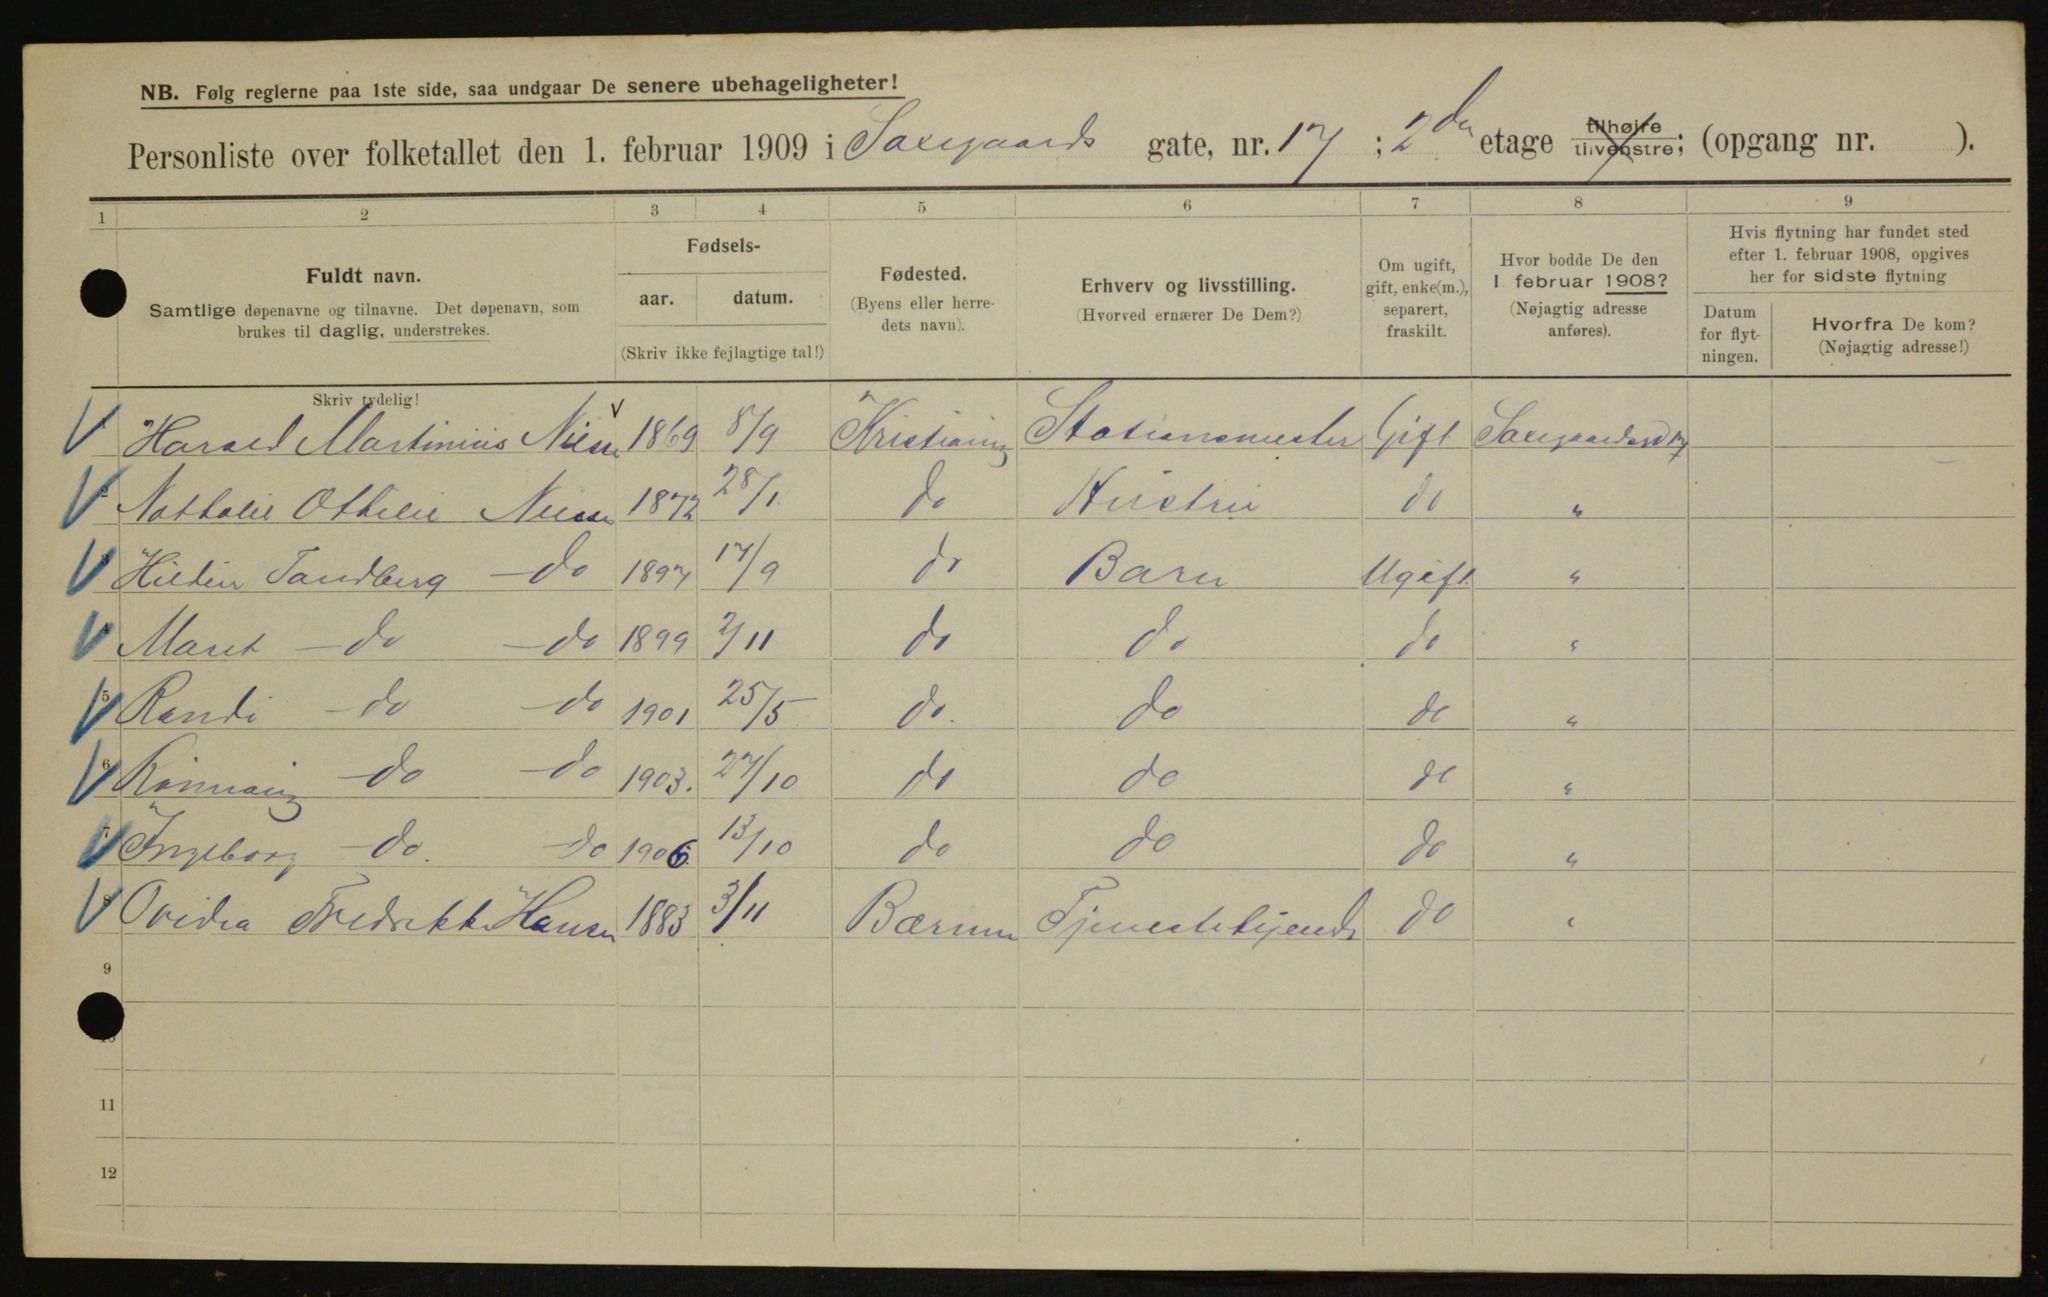 NB. Følg reglerne paa 1ste side, saa undgaar De senere ubehageligheter!
Personliste over folketallet den 1. februar 1909 i Saxegaards gate, nr. 17 ; 2den etage tilhøire tilvenstre; (opgang nr. ).
1 2 3 4 5 6 7 8 9
Fuldt navn.
Samtlige døpenavne og tilnavne. Det døpenavn, som
brukes til daglig, understrekes.
Skriv tydelig!
Fødsels-
aar. datum.
(Skriv ikke feilagtige tal!)
Fødested.
(Byens eller herre-
dets navn).
Erhverv og livsstilling.
(Hvorved ernærer De Dem?)
Om ugift,
gift, enke(m.),
separert,
fraskilt.
Hvor bodde De den
1 februar 1908?
(Nøjagtig adresse
anføres).
Hvis flytning har fundet sted
efter 1. februar 1908, opgives
her for sidste flytning
Datum
for flyt-
ningen.
Hvorfra De kom?
(Nøjagtig adresse!)
Harald Martinius 1869 8/9 Kristiania Stationsmester Gift Saxegaardsgd 17
2 Nathalie Othilie 1872 28/1 do Hustru do "
3 Tandberg do 1897 17/9 do Barn Ugift "
Maret do do 1899 2/11 do do do "
5 Randi do do 1901 25/5 do. do do "
6 do do 1903. 27/10 do do do "
7 Ingeborg do. do 1906 13/10 do do do "
8 Ovidia Fredrikke Hansen 1883 3/11 Bærum Tjenestetjende do "
9
10
11
12